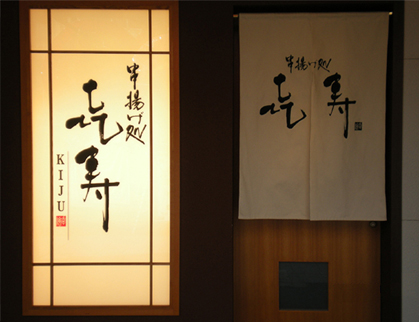 串揚げ処
喜寿
KIJU
串揚げ処
喜寿